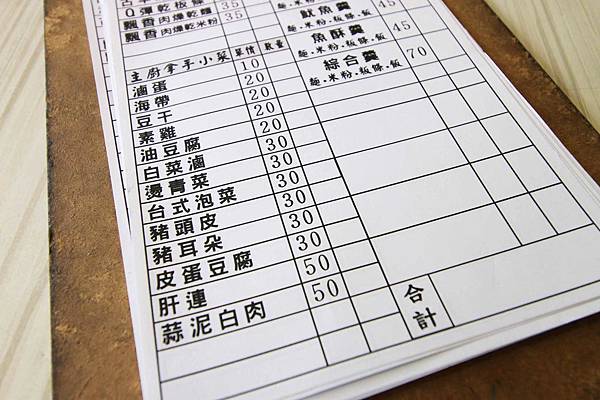 Q彈乾板條 35
飄香肉燥乾麵 35
飄香肉燥乾米粉 35
主廚拿手小菜 單價 數量
滷蛋 10
海帶 20
豆干 20
素雞 20
油豆腐 20
白菜滷 30
燙青菜 30
台式泡菜 30
豬頭皮 30
豬耳朵 30
皮蛋豆腐 30
肝連 50
蒜泥白肉 50
魷魚羹 45
麵.米粉.板條.飯
魚酥羹 45
麵.米粉.板條.飯
綜合羹 70
麵.米粉.板條.飯
合計